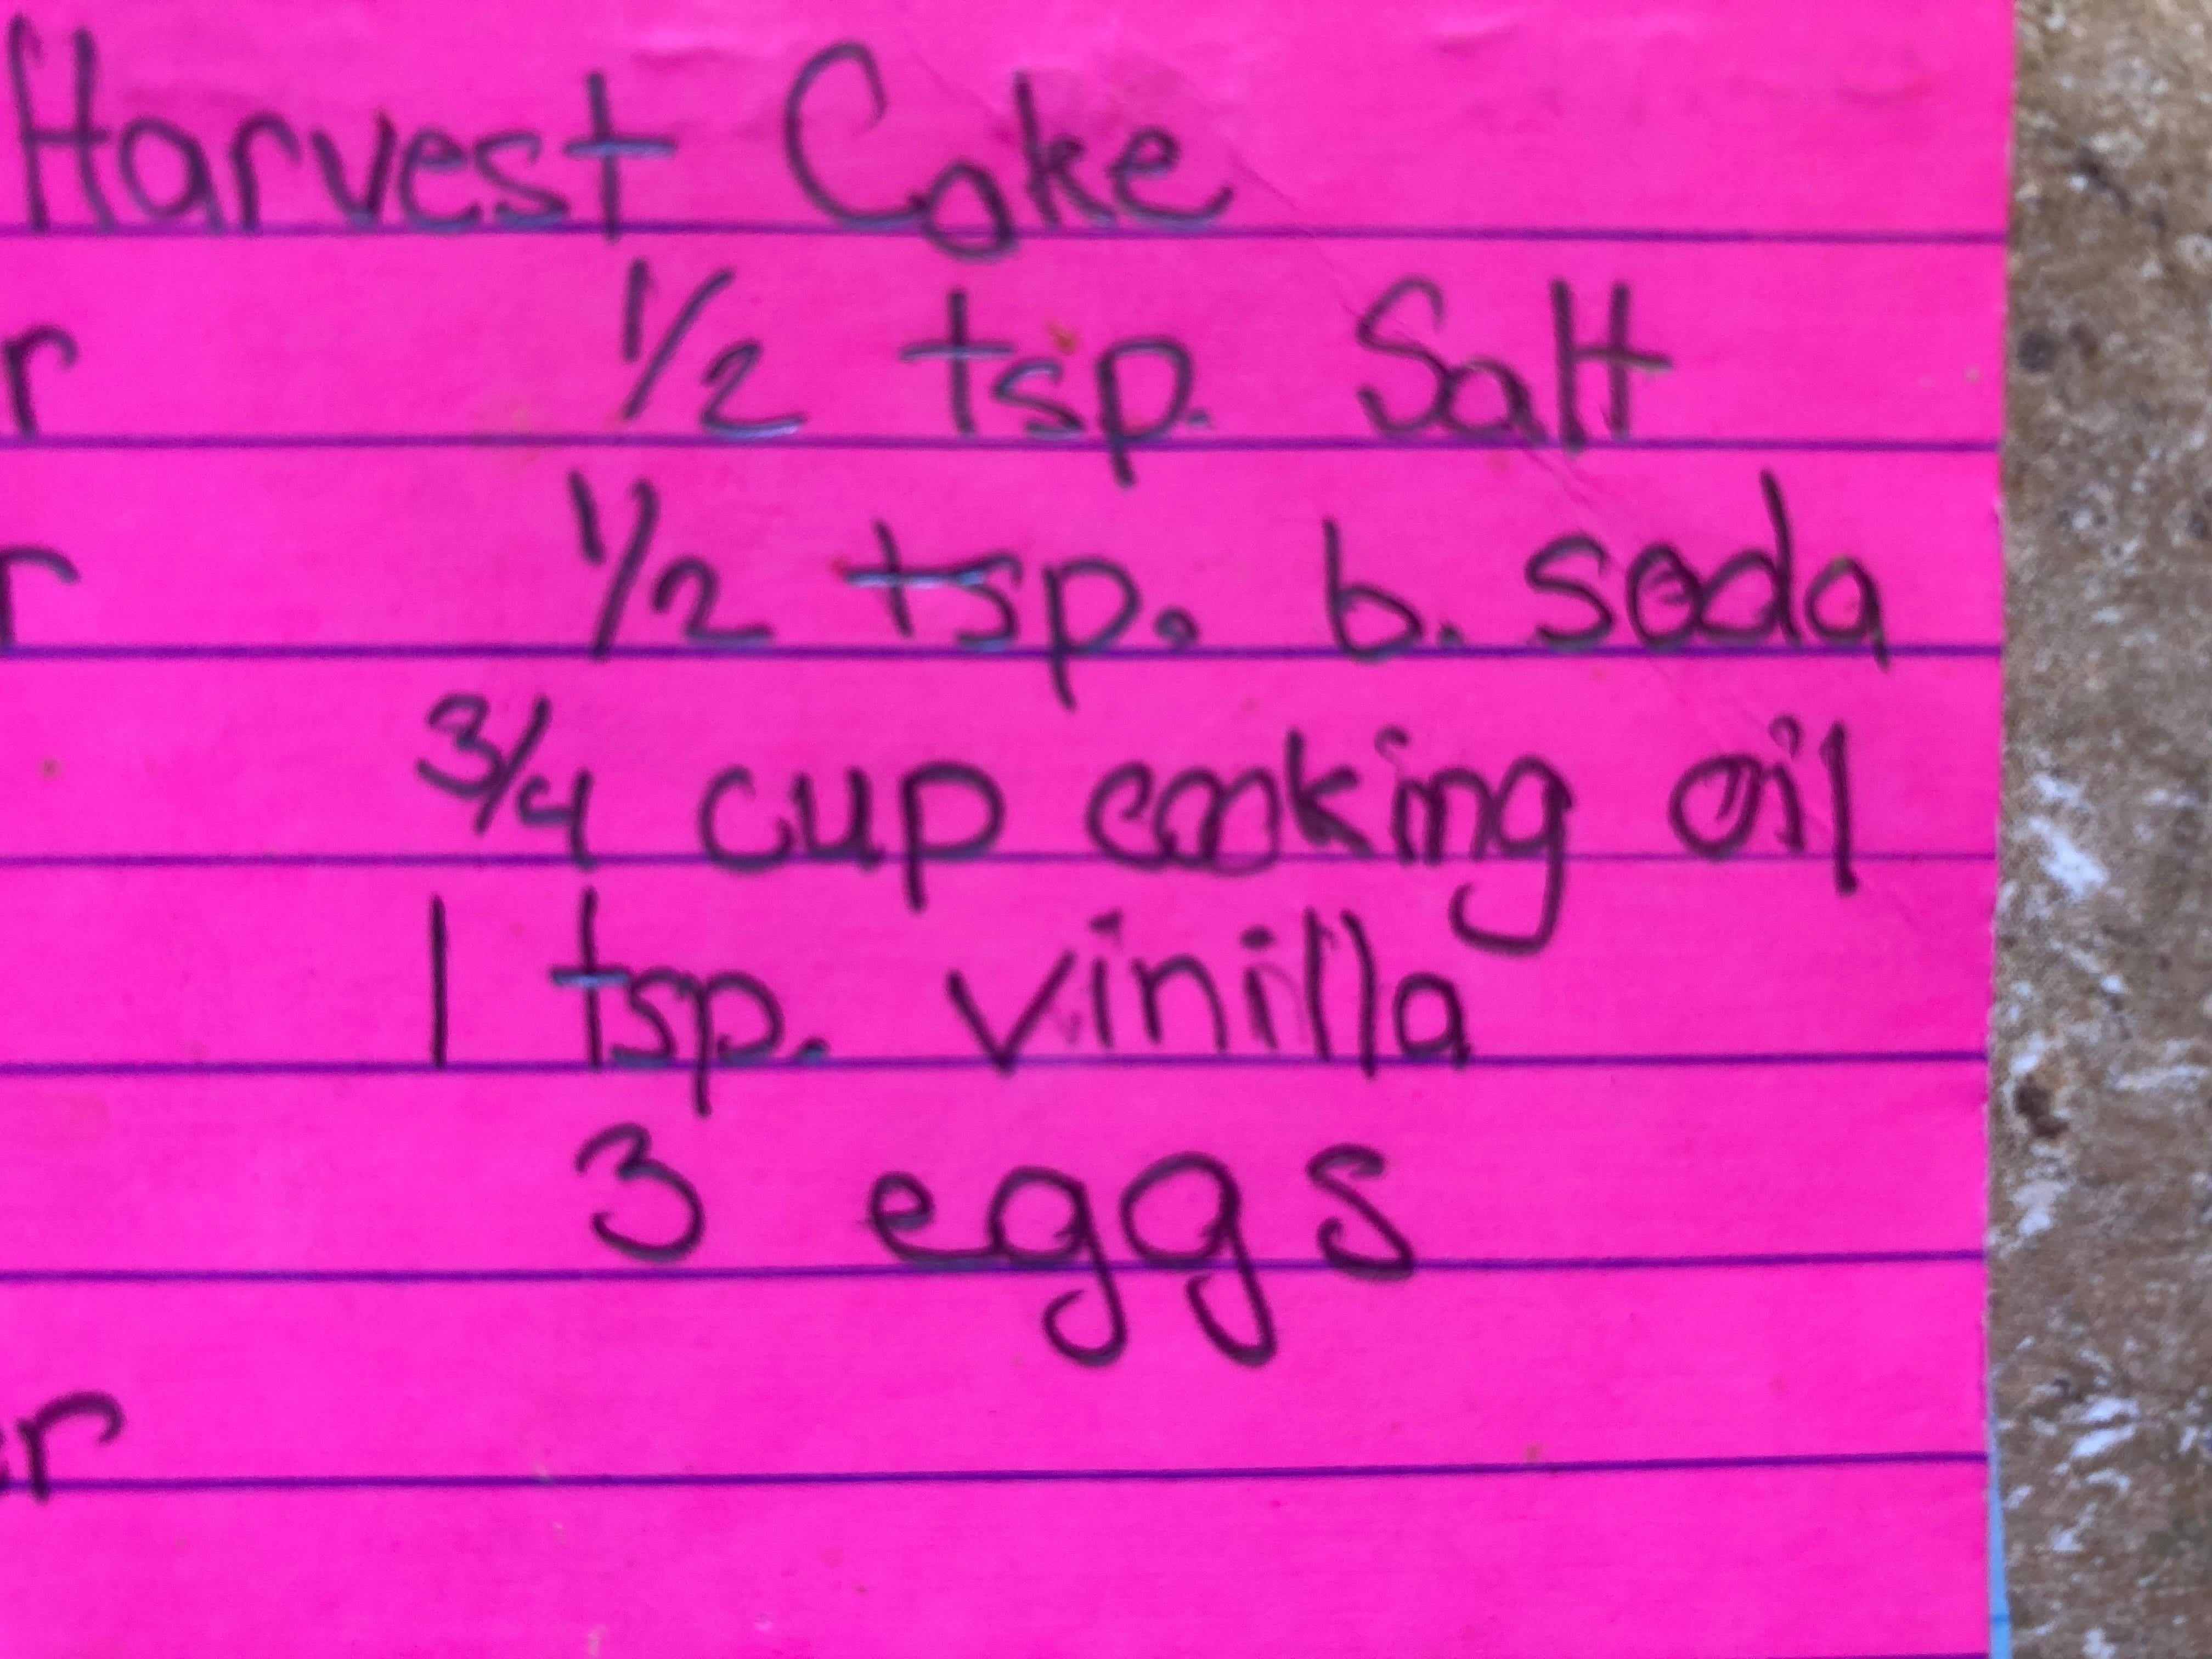 Harvest Cake
r 1/2 tsp. Salt
r 1/2 tsp. b. soda
3/4 cup cooking oil
1 tsp. vinilla
3 eggs
r